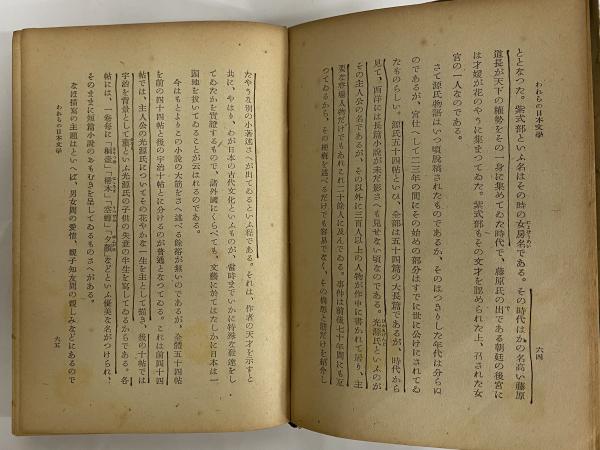 われらの日本文學
六四
ととなつた。紫式部といふ名はその時の女房名である。その時代はかの名高い藤原
道長が天下の權勢をその一身に集めてゐた時代で、藤原氏の出である朝廷の後宮に
は才媛が花のやうに集まつてゐた。紫式部もその文才を認められた上、召された女
宮の一人なのである。
さて源氏物語はいつ頃脱稿されたものであるか、そのはつきりした年代は分らぬ
のであるが、宮仕へして二三年の間にその始めの部分はすでに世に公けにされてゐ
たものらしい。源氏五十四帖といひ、全部は五十四篇の大長篇であるが、時代から
見て、西洋には長篇小説が未だ影さへも見せない頃なのである。光源氏といふのが
その主人公の名であるが、その以外に三百人以上の人物が作中に書かれて居り、主
要な登場人物だけでもあれこれ二十餘人に及んでゐる。事件は前後七十年間にも亙
つてゐるから、その梗概を述べるだけでも容易でなく、その構想と筋だけを紹介し
たやうな別の小著述さへが出てゐるといふ始末である。それは、作者の天才を示すと
共に、やはり、わが日本の古代文化といふものが、當時までいかに特殊な發達をし
てゐたかを實證するもので、諸外國にくらべても、文藝に於てはたしかに日本は一
頭地を拔いてゐることが云はれるのである。
今はもとよりこの小説の大筋をさへ述べる餘裕が無いのであるが、全體五十四帖
を前の四十四帖と後の宇治十帖とに分けるのが普通となつてゐる。これは前四十四
帖では、主人公の光源氏についてその花やかな一生を主として描き、後の十帖では
宇治を背景として薫といふ光源氏の子供の失意の半生を寫してゐるからである。各
帖には、一卷每に「桐壺」「帚木」「空蟬」「夕顏」などといふ優美な名がつけられ、
そのままに短篇小説のおもむきを呈してゐるものさへがある。
なほ描寫の主題はといへば、男女間の愛情、親子知友間の親しみなどにあるので
われらの日本文學
六五